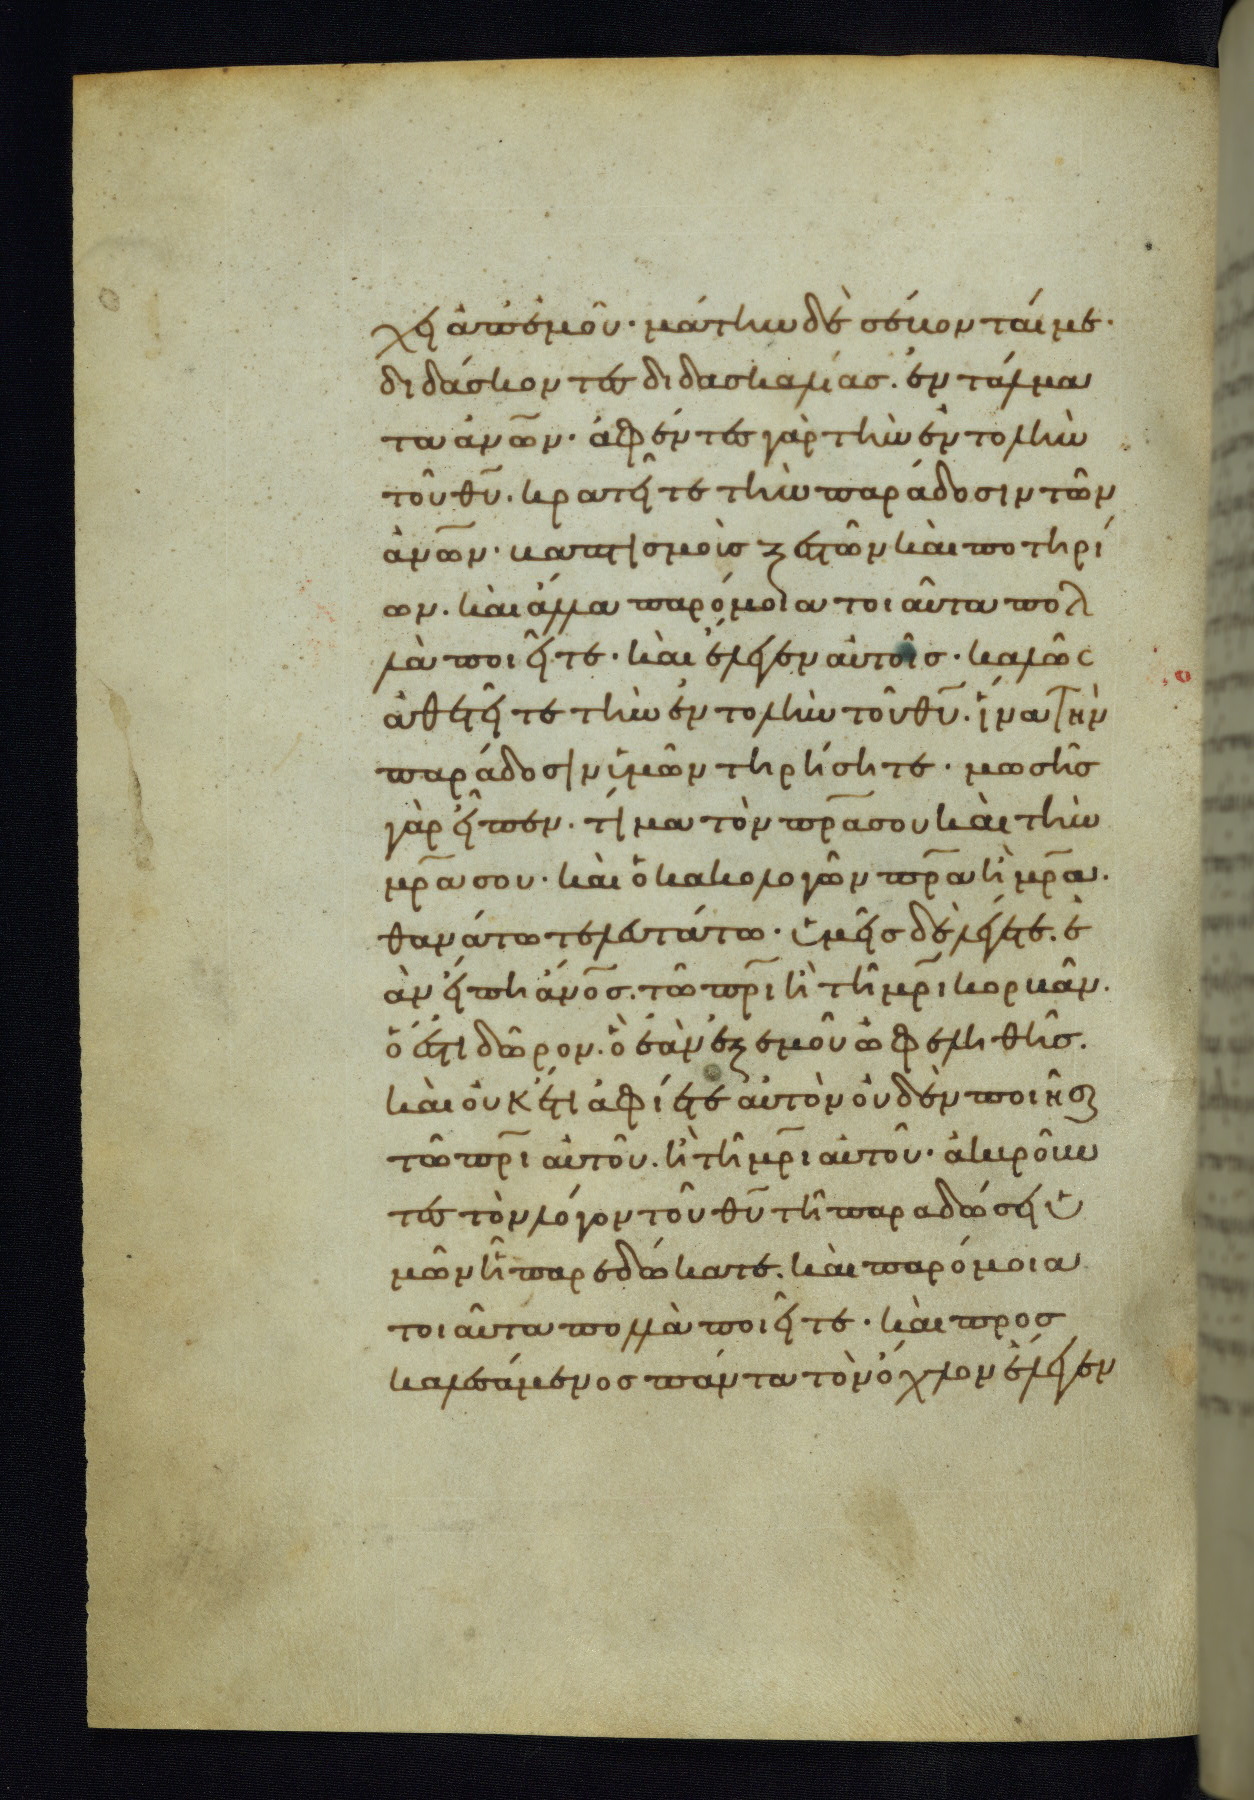 χει ἀπ' ἐμοῦ· μάτην δὲ σέβονταί με·
διδάσκοντες διδασκαλίας. ἐντάλμα
τα ἀν̅ω̅ν· ἀφέντες γὰρ τὴν ἐντολὴν
τοῦ θυ̅. κρατεῖτε τὴν παράδοσιν τῶν
ἀν̅ω̅ν· βαπτισμοὺς ξεστῶν καὶ ποτηρί
ων. καὶ ἄλλα παρόμοια τοιαῦτα πολ
λὰ ποιεῖτε· καὶ ἔλεγεν αὐτοῖς· καλῶς
ἀθετεῖτε τὴν ἐντολὴν τοῦ θυ̅. ἵνα τὴν
παράδοσιν ὑμῶν τηρήσητε· μωσῆς
γὰρ εἶπεν· τίμα τὸν πρ̅α σου καὶ τὴν
μρ̅α σου· καὶ ὁ κακολογῶν πρ̅α ἢ μρ̅α.
θανάτω τελευτάτω· ὑμεῖς δὲ λέγετε. ἐ
ὰν εἴπη ἄν̅ο̅ς. τῶ πρ̅ι ἢ τῆ μρ̅ι κορβᾶν.
ὅ ἐστι δῶρον. ὃ ἐὰν ἐξ ἐμοῦ ὠφεληθῆς.
καὶ οὐκ έτι ἀφίετε αὐτὸν οὐδὲν ποιῆσαι
τῶ πρ̅ι αὐτοῦ. ἢ τῆ μρ̅ι αὐτοῦ· ἀκυροῦν
τες τὸν λόγον τοῦ θυ̅ τῆ παραδώσει ὑ
μῶν ἧ παρεδώκατε. καὶ παρόμοια
τοιαῦτα πολλὰ ποιεῖτε· καὶ προσ
καλεσάμενος πάντα τὸν ὄχλον ἔλεγεν